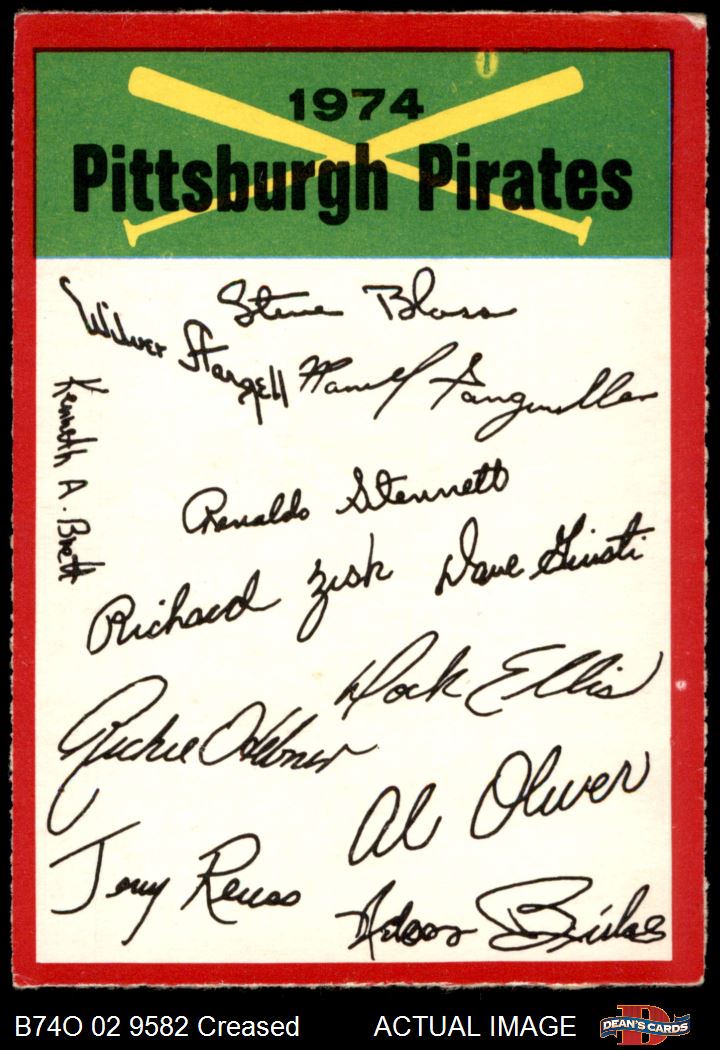 1974
Pittsburgh Pirates
Steve Blass
Wilver Stargell
Manuel Sanguillen
Kenneth A. Brett
Renaldo Stennett
Richard Zisk
Dave Giusti
Dock Ellis
Richie Hebner
Al Oliver
Jerry Reuss
Nelson Briles
B74O 02 9582 Creased
ACTUAL IMAGE
DEAN'S CARDS